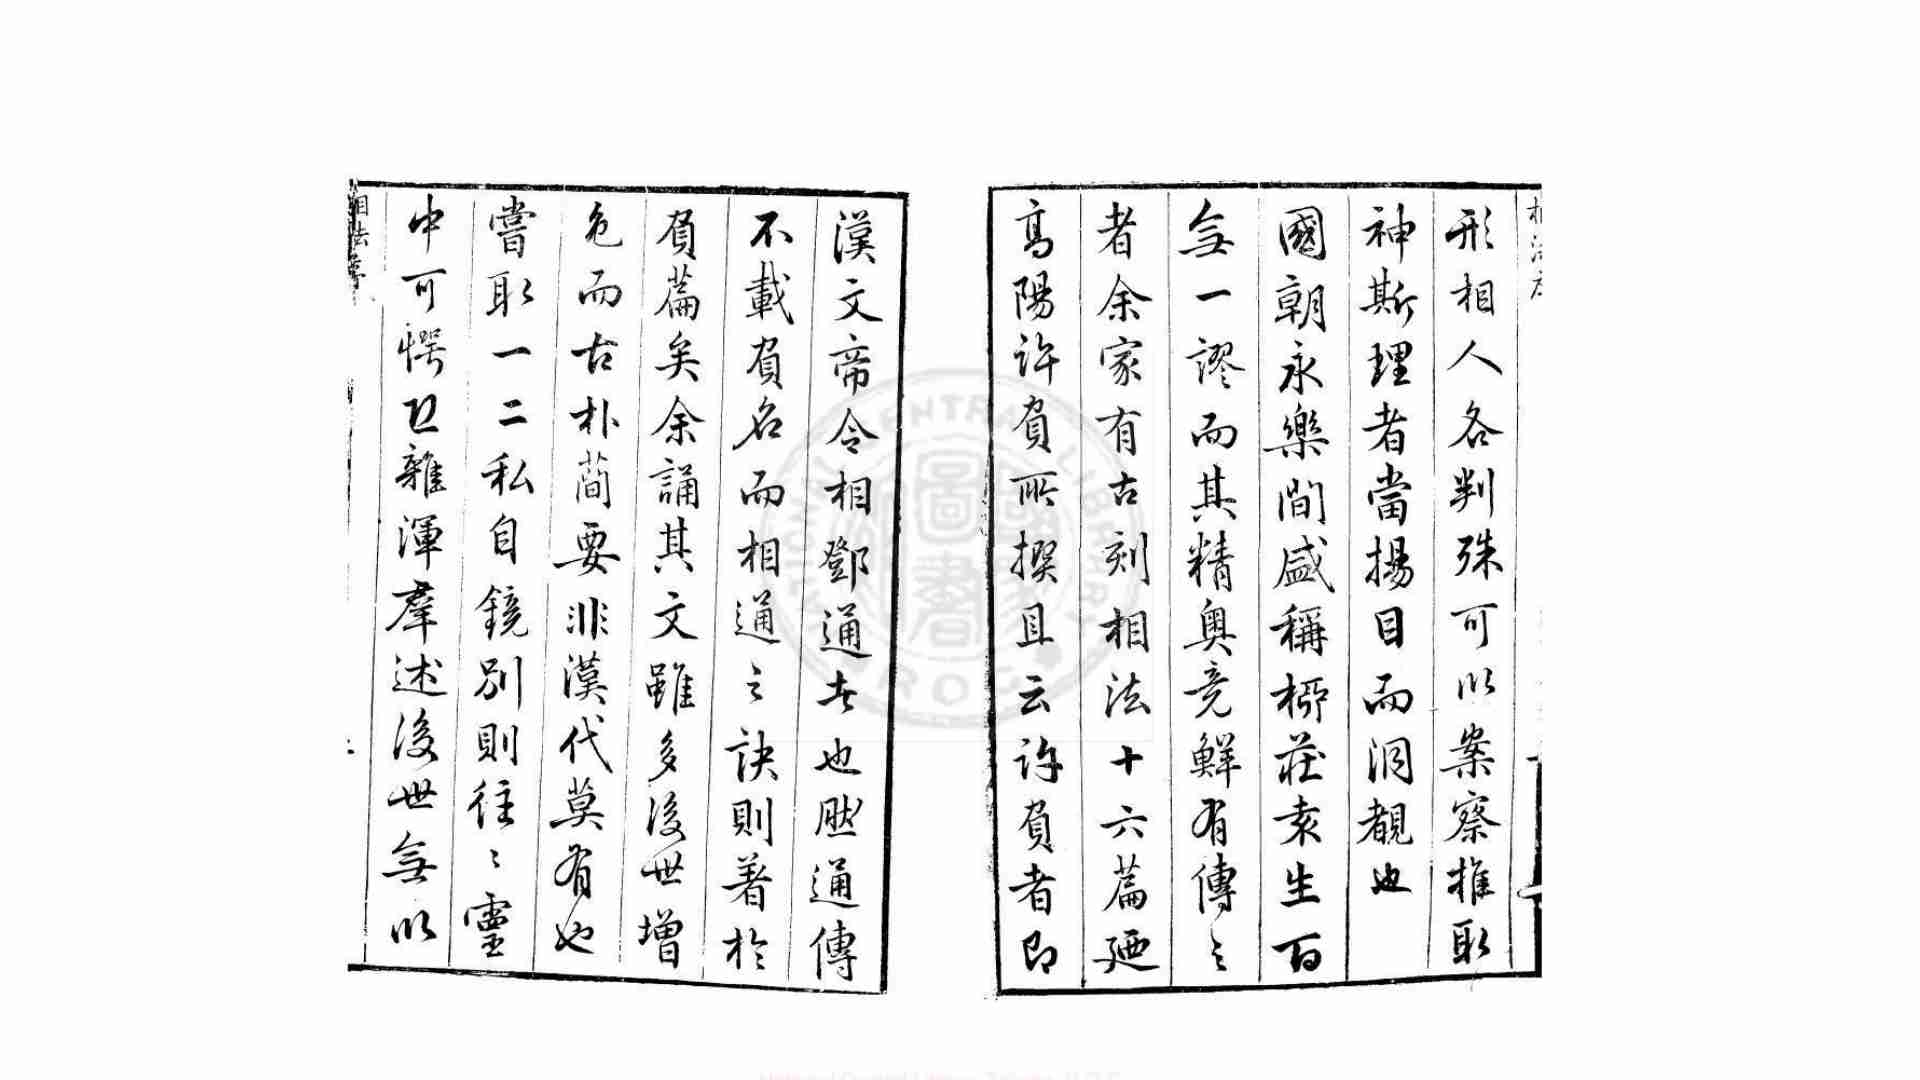 形相人各判殊可以案察推取
神斯理者當揚目而洞覩也
國朝永樂間盛稱柳莊袁生百
無一謬而其精奧竞鮮有傳之
者余家有古刻相法十六篇廼
高陽許負所撰且云許負者即
漢文帝令相鄧通者也然通傳
不載負名而相通之訣則著於
負篇矣余誦其文雖多後世增
色而古朴蕳要非漢代莫有也
嘗取一二私自鏡別則往々靈
中可愕恐雜渾羣述後世無以